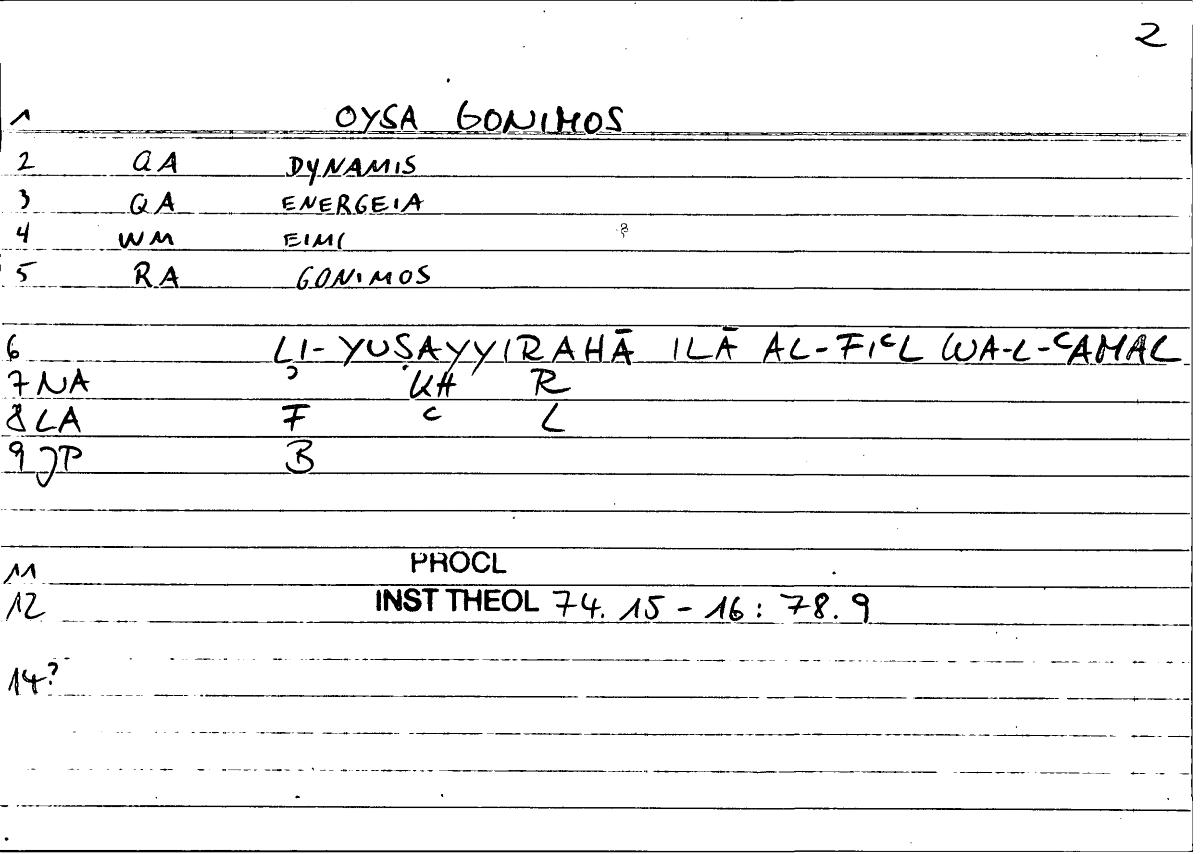 2
1 OYSA GONIMOS
2 QA DYNAMIS
3 QA ENERGEIA
4 WM EIMI
5 RA GONIMOS
6 LI-YUṢAYYIRAHĀ ILĀ AL-FIʿL WA-L-ʿAMAL
7 NA ʾ KH R
8 LA F ʿ L
9 JP B
11 PROCL
12 INST THEOL 74. 15 - 16 : 78. 9
14?